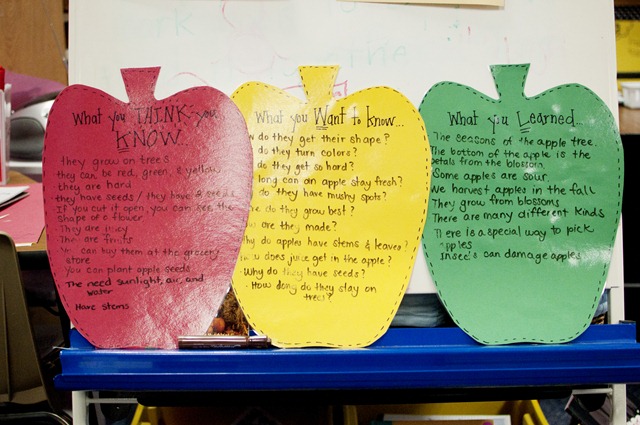 What you THINK you
KNOW...
they grow on trees
they can be red, green & yellow
they are hard
they have seeds / they have 8 seeds
If you cut it open you can see the
shape of a flower
They are juicy
They are fruits
You can buy them at the grocery
store
You can plant apple seeds
The need sunlight, air, and
water
Have stems
What you Want to Know...
do they get their shape?
do they turn colors?
do they get so hard?
long can an apple stay fresh?
do they have mushy spots?
do they grow best?
are they made?
do apples have stems & leaves?
does juice get in the apple?
Why do they have seeds?
How long do they stay on
trees?
What you Learned...
The seasons of the apple tree.
The bottom of the apple is the
petals from the blossom
Some apples are sour
We harvest apples in the fall
They grow from blossoms
There are many different kinds
There is a special way to pick
apples
Insects can damage apples